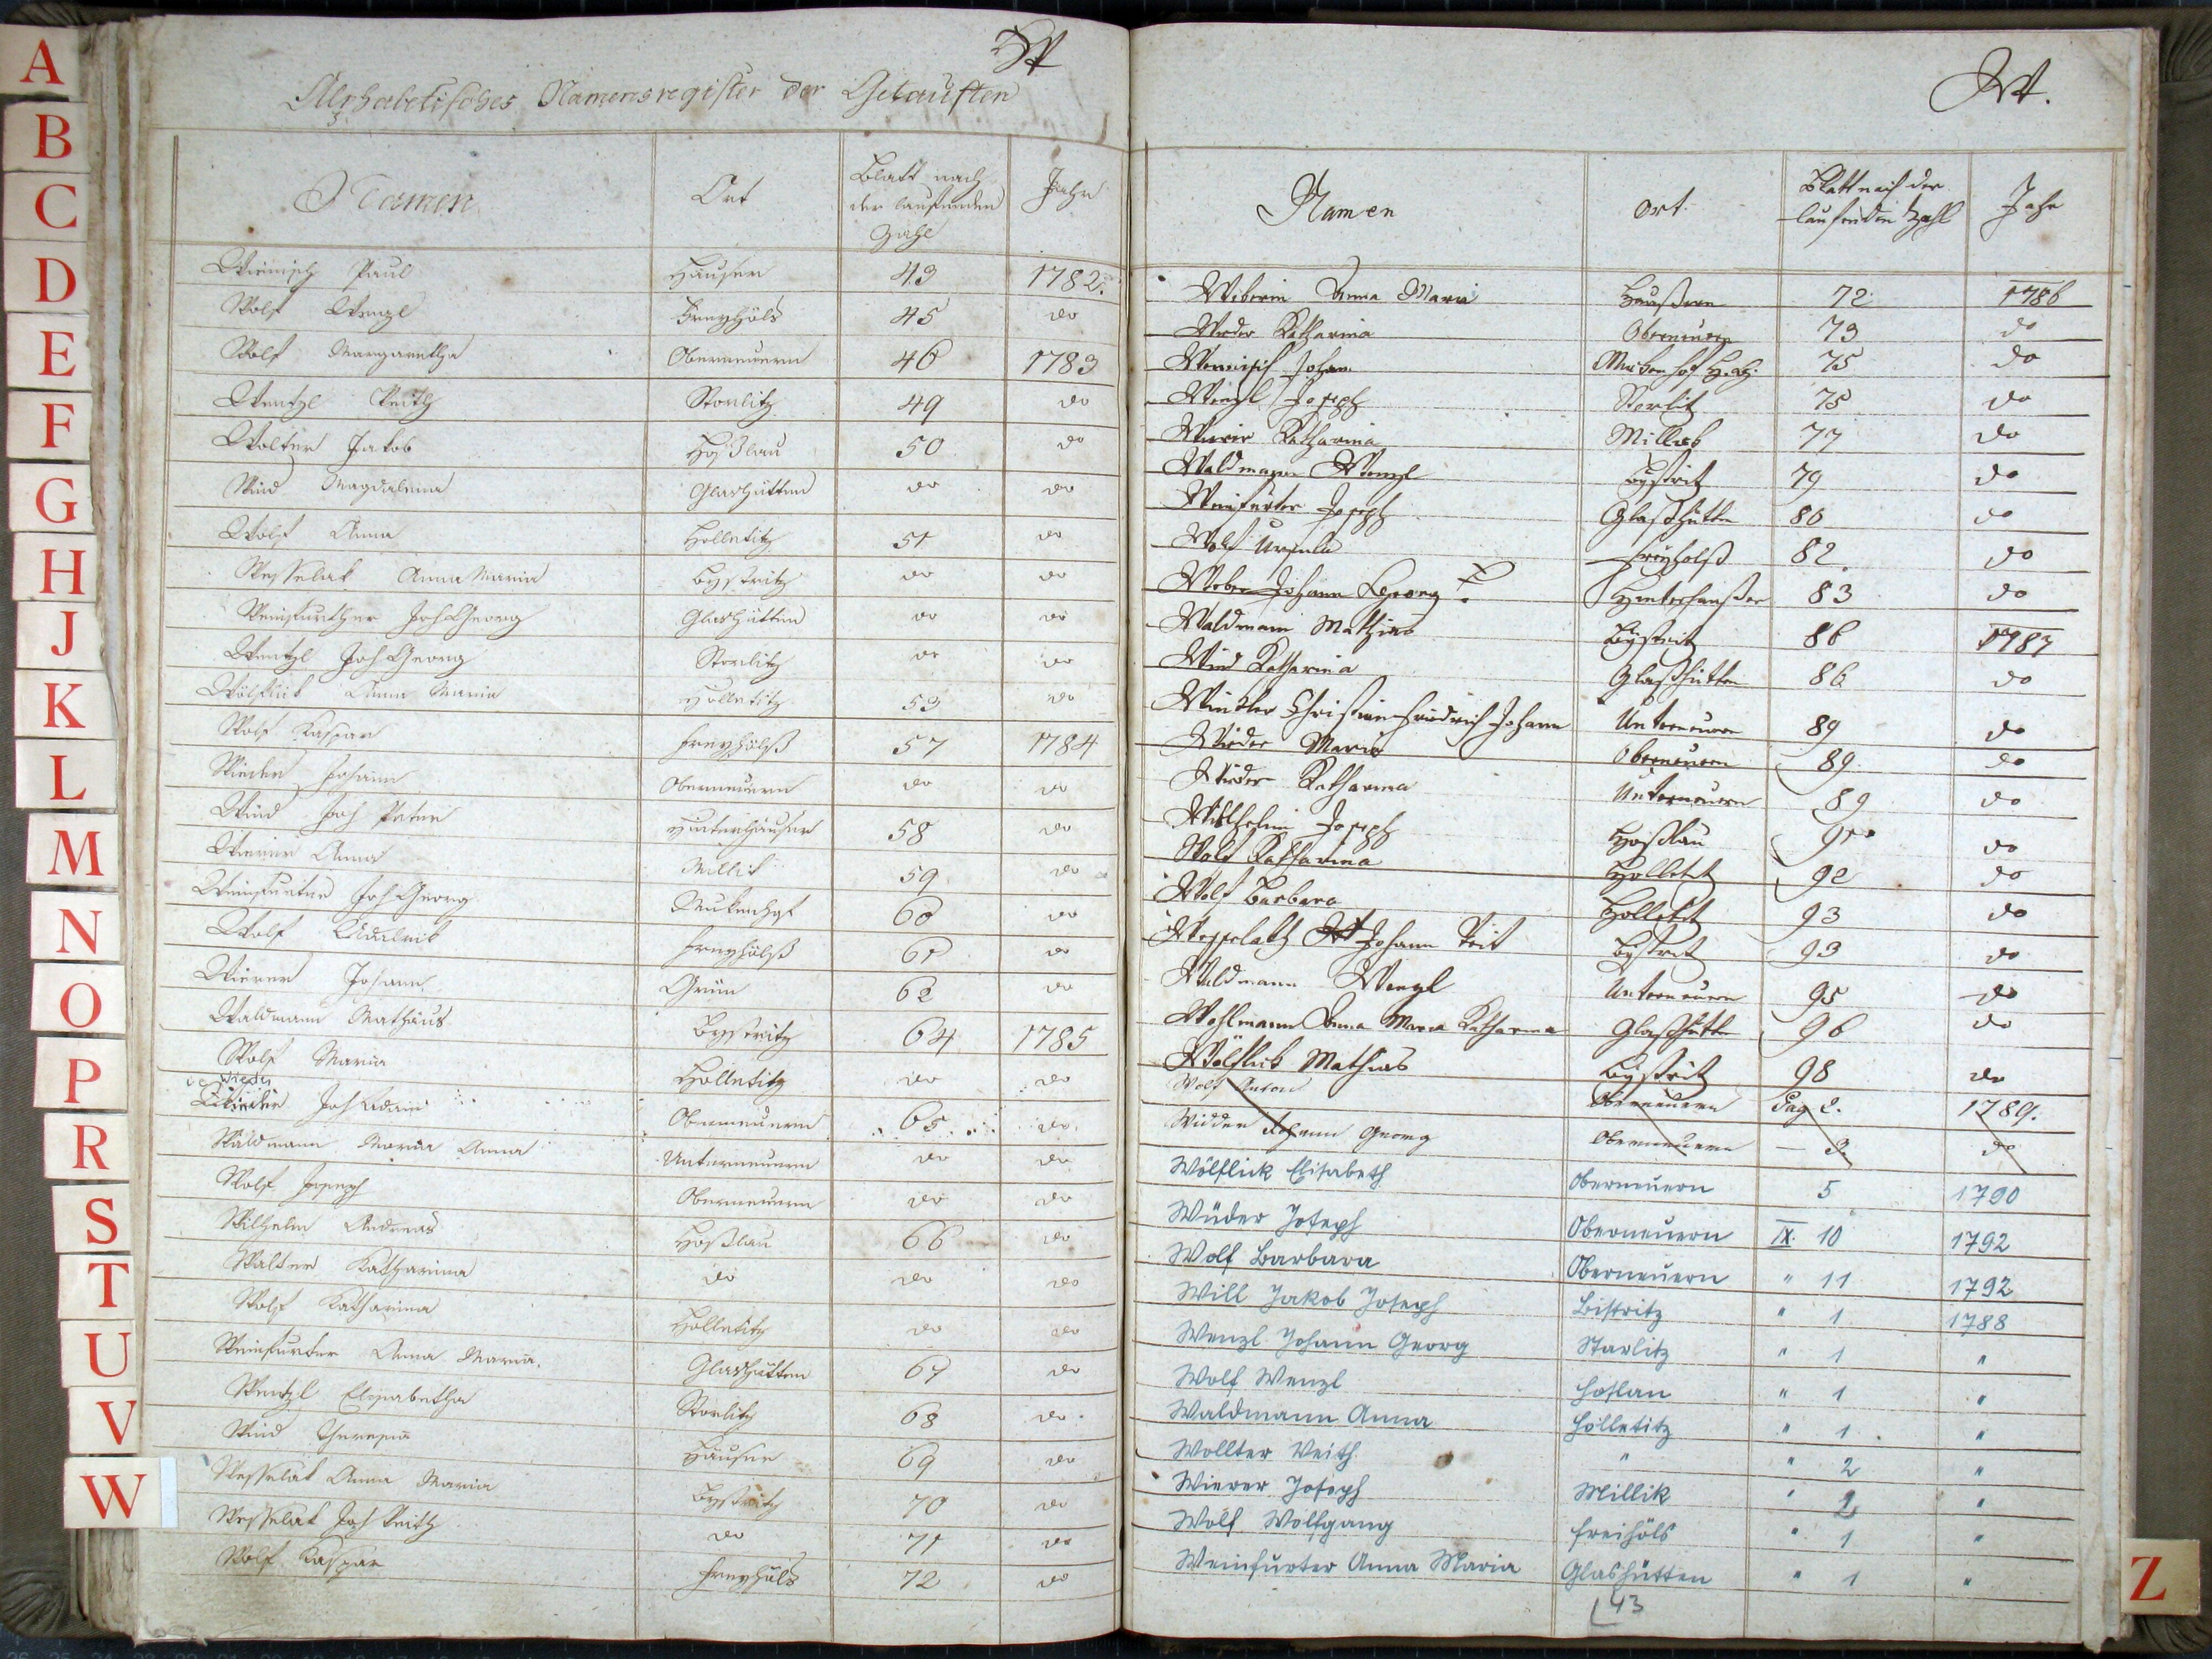 A
B
C
D
E
F
G
H
J
K
L
M
N
O
P
R
S
T
U
V
W
Z
W
Alphabetisches Namensregister der Getauften
Namen Ort Blatt nach der laufenden Zahl Jahr
Paul Häuser 43 1782.
Wolf Wenzl Freyhöls 45 do
Wolf Margaretha Oberneuern 46 1783
Wentzl Veith Storlitz 49 do
Wolter Jakob Hoßlau 50 do
Wind Magdalena Glashütten do do
Wolf Anna Holletitz 51 do
Wesselak Anna Maria Bystritz do do
Weinfurther Joh Georg Glashütten do do
Wentzl Joh Georg Storlitz do do
Wölflick Anna Maria Holletitz 53 do
Wolf Kaspar Freyhölß 57 1784
Wieder Johann Oberneuern do do
Wind Joh Peter Hinterhäuser 58 do
Wierer Anna Millik 59 do
Weinfurter Joh Georg 60 do
Wolf Freyhölß 61 do
Wierer Johann Grün 62 do
Waldmann Mathäus Bystritz 64 1785
Wolf Maria Holletitz do do
Wieder Joh Adam Oberneuern 65 do
Waldmann Maria Anna Unterneuern do do
Wolf Joseph Oberneuern do do
Wilhelm Andreas Hoßlau 66 do
Walter Katharina do do do
Wolf Katharina Holletitz do do
Weinfurter Anna Maria. Glashütten 67 do
Wentzl Elisabetha Storlitz 68 do
Wind Theresia Häuser 69 do
Wesselak Anna Maria Bystritz 70 do
Wesselak Joh Veith do 71 do
Wolf Kaspar Freyhöls 72 do
W.
Namen Ort. Blatt nach der laufenden Zahl Jahr
Weberin Anna Maria Häußern 72 1786
Wieder Katharina Oberneuern 73 do
Johan 75 do
Wenzl Joseph Storlitz 75 do
Wierer Katharina Millik 77 do
Waldmann Wenzl Bystritz 79 do
Weinfurter Joseph Glaßhütten 80 do
Wolf Ursula Freyhölß 82 do
Weber Johann Georg Hinterhäußer 83 do
Waldmann Mathias Bystritz 86 1787
Wind Katharina Glaßhütten 86 do
Winkler Christian Friedrich Johann Unterneuern 89 do
Wieder Maria Oberneuern 89 do
Wieder Katharina Unterneuern 89 do
Willhelm Joseph Hoßlau 91 do
Wolf Katharina Holletitz 92 do
Wolf Barbara Holletitz 93 do
Wesselack Johann Veit Bystritz 93 do
Waldmann Wenzl Unterneuern 95 do
Wohlmann Anna Maria Katharina Glaßhütte 96 do
Wölflick Mathias Bystritz 98 do
Wolf Anton Oberneuern Pag 2. 1789.
Widder Johann Georg Oberneuern — 3 do
Wölflick Elisabeth Oberneuern 5 1790
Wüder Joseph Oberneuern IX. 10 1792
Wolf Barbara Oberneuern " 11 1792
Will Jakob Joseph Bistritz " 1 1788
Wenzl Johann Georg Starlitz " 1 "
Wolf Wenzl Hoslau " 1 "
Waldmann Anna Holletitz " 1 "
Wollter Veith " " 2 "
Wierer Joseph Millik " 2 "
Wolf Wolfgang Freihöls " 1 "
Weinfurter Anna Maria Glashütten " 1 "
43